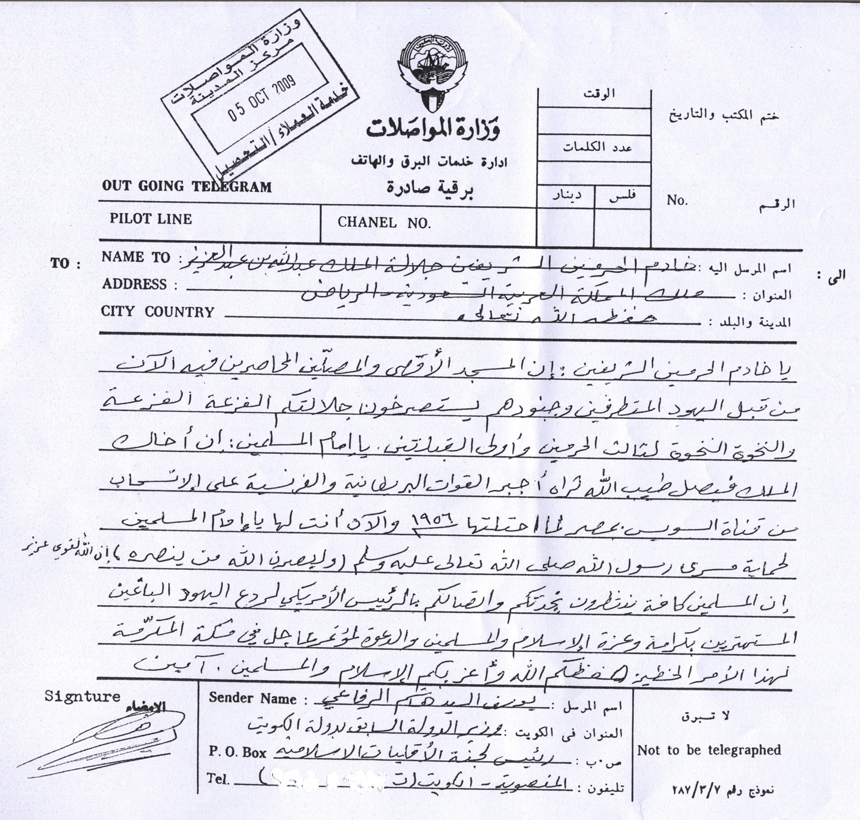 وزارة المواصلات
مركز المدينة
05 OCT 2009
خدمة العملاء / التحصيل
وزارة المواصلات
ادارة خدمات البرق والهاتف
برقية صادرة
OUT GOING TELEGRAM
الوقت
عدد الكلمات
فلس
دينار
ختم المكتب والتاريخ
No.
الرقم
PILOT LINE
CHANEL NO.
TO :
NAME TO : خادم الحرمين الشريفين جلالة الملك عبدالله بن عبدالعزيز اسم المرسل اليه :
الى :
ADDRESS : ملك المملكة العربية السعودية - الرياض العنوان :
CITY COUNTRY حفظه الله تعالى المدينة والبلد :
يا خادم الحرمين الشريفين : إن المسجد الأقصى والمصلّين المحاصرين فيه الآن
من قبل اليهود المتطرفين وجنودهم يستصرخون جلالتكم الفزعة الفزعة
والنخوة النخوة لثالث الحرمين وأولى القبلتين. يا إمام المسلمين : إن أخاك
الملك فيصل طيب الله ثراه أجبر القوات البريطانية والفرنسية على الانسحاب
من قناة السويس بمصر لما احتلتها ١٩٥٦ والآن أنت لها يا إمام المسلمين
لحماية مسرى رسول الله صلى الله تعالى عليه وسلم (ولينصرن الله من ينصره) إن الله لقوي عزيز
إن المسلمين كافة ينتظرون نجدتكم واتصالكم بالرئيس الأمريكي لردع اليهود الباغين
المستهترين بكرامة وعزة الإسلام والمسلمين والدعوة لمؤتمر عاجل في مكة المكرّمة
لهذا الأمر الخطير حفظكم الله وأعز بكم الإسلام والمسلمين . آمين
Signture الامضاء
Sender Name : يوسف السيد هاشم الرفاعي اسم المرسل :
وزير الدولة السابق بدولة الكويت العنوان فى الكويت :
P. O. Box رئيس لجنة الأقليات الاسلامية ص . ب :
Tel. المنصورية - الكويت (ت ) تليفون :
لا تبرق
Not to be telegraphed
نموذج رقم ٢٨٧/٣/٧